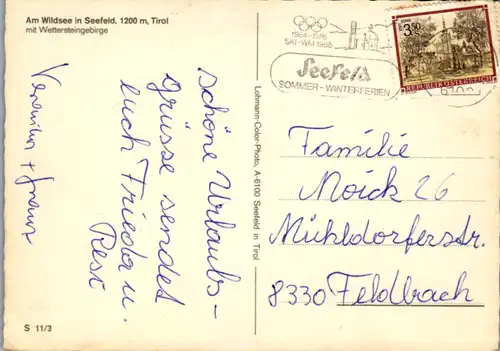 Am Wildsee in Seefeld, 1200 m, Tirol
mit Wettersteingebirge
schöne Urlaubs-
grüsse sendet
euch Frieda u.
Resi
Lohmann-Color-Photo, A-6100 Seefeld in Tirol
1964-1976
SKI-WM 1985
Seefeld
SOMMER-WINTERFERIEN
3.50
REPUBLIK ÖSTERREICH
Familie
Moick 26
Mühldorferstr.
8330 Feldbach
S 11/3